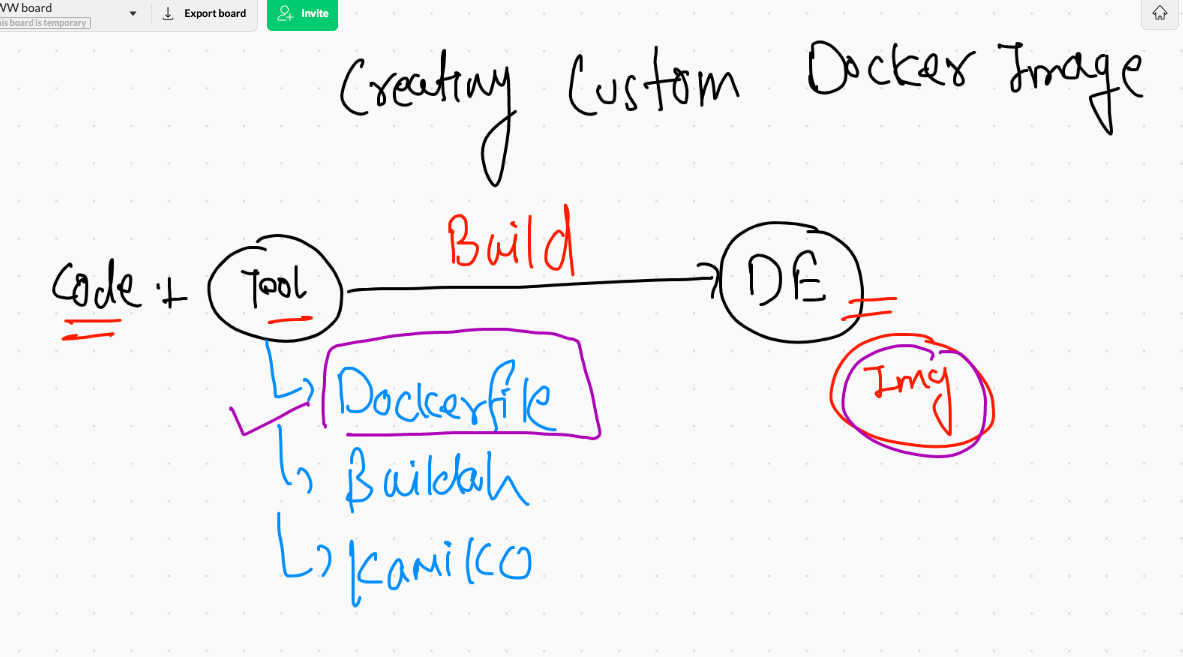 WW board
his board is temporary
Export board
Invite
Creating Custom Docker Image
Build
Code + Tool
DE
Img
Dockerfile
Buildah
Kaniko